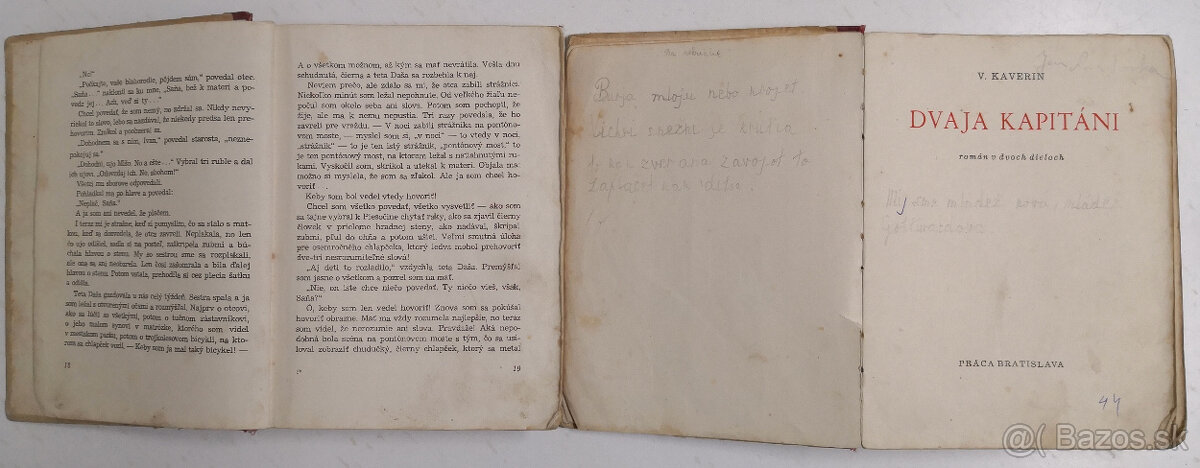 „No!"
„Počkajte, vaše blahorodie, pôjdem sám," povedal otec.
„Saňa..." naklonil sa ku mne, „Saňa, bež k materi a po-
vedz jej... Ach, veď si ty..."
Chcel povedať, že som nemý, no zdržal sa. Nikdy nevy-
riekol to slovo, lebo sa nazdával, že niekedy predsa len pre-
hovorím. Zmĺkol a poobzeral sa.
„Dohodnem sa s ním, Ivan," povedal starosta, „nezne-
pokojuj sa."
„Dohodni, ujo Mišo. No a ešte..." Vybral tri ruble a dal
ich ujovi. „Odovzdaj ich. No, sbohom!"
Všetci mu sborove odpovedali.
Pohladkal ma po hlave a povedal:
„Neplač, Saňa."
A ja som ani nevedel, že plačem.
I teraz mi je strašne, keď si pomyslím, čo sa stalo s mat-
kou, keď sa dozvedela, že otca zavreli. Neplakala, no len
čo ujo odišiel, sadla si na posteľ, zaškrípala zubmi a bú-
chla hlavou o stenu. My so sestrou sme sa rozplakali,
no ona sa ani neobzrela. Len čosi zašomrala a bila ďalej
hlavou o stenu. Potom vstala, prehodila si cez plecia šatku
a odišla.
Teta Daša gazdovala u nás celý týždeň. Sestra spala a ja
som ležal s otvorenými očima a rozmýšľal. Najprv o otcovi,
ako sa lúčil so všetkými, potom o tučnom zástavníkovi,
o jeho malom synovi v matrózke, ktorého som videl
v mestskom parku, potom o trojkolesovom bicykli, na kto-
rom sa chlapček vozil, — Keby som ja mal taký bicykel! —
18
A o všetkom možnom, až kým sa mať nevrátila. Vošla dnu
schudnutá, čierna a teta Daša sa rozbehla k nej.
Neviem prečo, ale zdalo sa mi, že otca zabili strážnici.
Niekoľko minút som ležal nepohnute. Od veľkého žiaľu ne-
počul som okolo seba ani slova. Potom som pochopil, že
žije, ale ma k nemu nepustia. Tri razy povedala, že ho
zavreli pre vraždu. — V noci zabili strážnika na pontóno-
vom moste, — myslel som si, „v noci" — to vtedy v noci,
„strážnik" — to je ten istý strážnik, „pontónový most" —
to je ten pontónový most, na ktorom ležal s natiahnutými ru-
kami. Vyskočil som, skríkol a utekal k materi. Objala ma
možno si myslela, že som sa zľakol. Ale ja som chcel
hovoriť
Keby som bol vedel vtedy hovoriť!
Chcel som všetko povedať, všetko vysvetliť — ako som
sa tajne vybral k Piesočine chytať raky, ako sa zjavil čierny
človek v prielome hradnej steny, ako nadával, škrípal
zubmi, pľul do ohňa a potom ušiel. Veľmi smutná úloha
pre osemročného chlapčeka, ktorý ledva mohol prehovoriť
dve-tri nesrozumiteľné slová!
„Aj deti to rozladilo," vzdychla teta Daša. Premýšľal
som jasne o všetkom a pozrel som na mať.
„Nie, on iste chce niečo povedať. Ty niečo vieš, však,
Saňa?"
Ó, keby som len vedel hovoriť! Znova som sa pokúšal
hovoriť obrazne. Mať ma vždy rozumela najlepšie, no teraz
som videl, že nerozumie ani slova. Pravdaže! Aká nepo-
dobná bola scéna na pontónovom moste s tým, čo sa usi-
loval zobraziť chudučký, čierny chlapček, ktorý sa metal
19
Burja mloju nebo krojet
V. KAVERIN
DVAJA KAPITÁNI
román v dvoch dieloch
My sme mládež nová mládež
Gottwaldova
PRÁCA BRATISLAVA
44
@( Bazos.sk